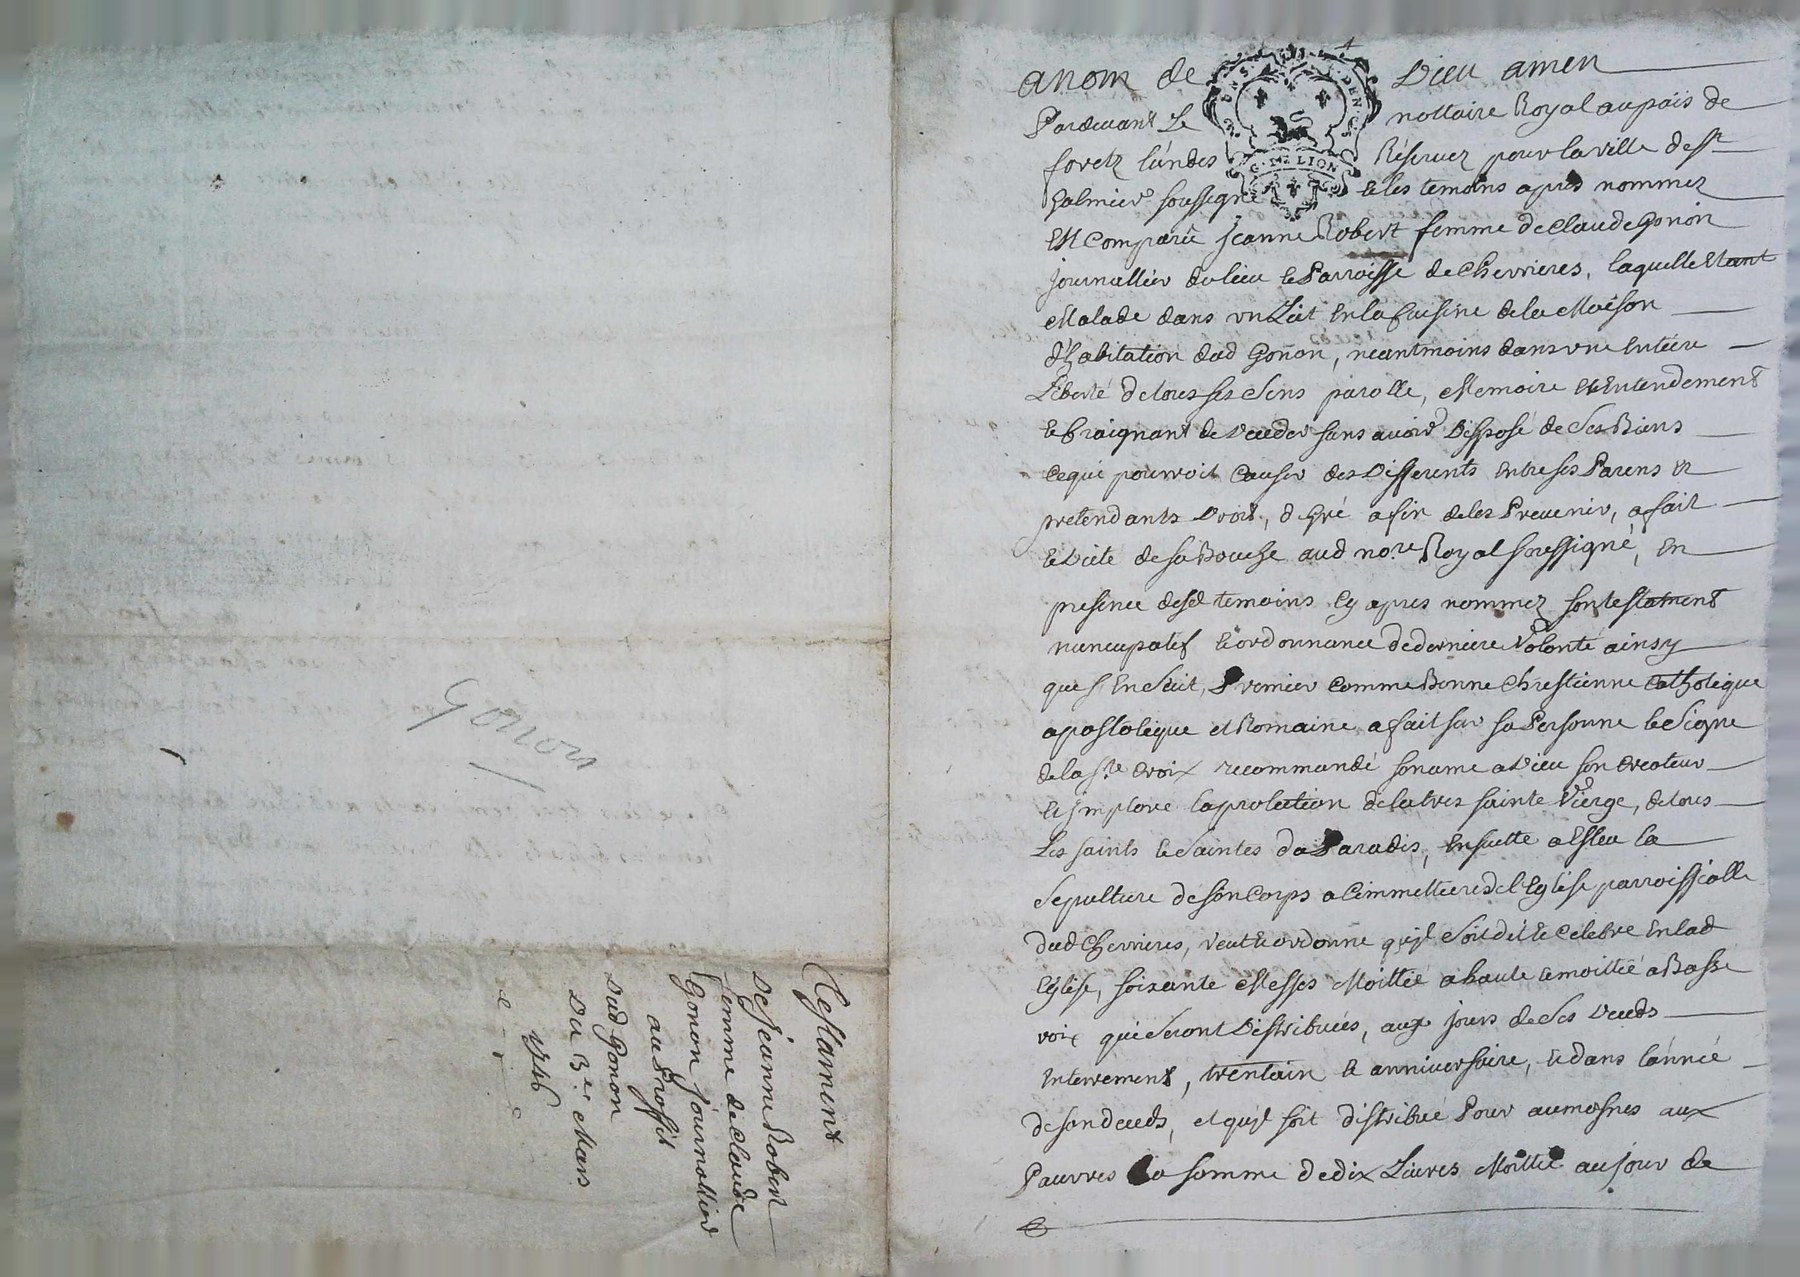 Gonon
Testament
De Jeanne Robert
femme de Claude
Gonon Journallier
au Proffit
Dud Gonon
Du 3e. Mars
1746
au nom de Dieu amen
Pardevant Le nottaire Royal au païs de
foretz l'un des Réservez pour la ville de st
Galmier soussigné & les temoins apres nommez
Est Comparüe Jeanne Robert femme de Claude Gonon
Journallier du lieu & Parroisse de Chevrieres, laquelle Etant
Malade dans un Lit En la Cuisine de la Maison
d'habitation dud Gonon, neantmoins dans une Entiere
Liberté de tous ses Sens parolle, Memoire Et Entendement
& Craignant de Deceder sans avoir Disposé de Ses Biens
Ce qui pourroit Causer des Differents Entre ses Parens Et
pretendants Droit, de Gré afin de les Prevenir, a fait
& Dicté de sa Bouche aud nore Royal soussigné, En
presence desd temoins Cy apres nommez son testament
nuncupatif & ordonnance de derniere Volonté ainsy
que s'En suit, Premier Comme Bonne Chrestienne Catholique
apostolique et Romaine a fait sur sa Personne le Signe
de la ste Croix recommandé son ame a Dieu son Createur
& Imploré la protection de la tres sainte Vierge, de tous
Les saints & Saintes du Paradis, Ensuitte a Esleu la
Sepulture de son Corps au Cimmettiere de l'Eglise parroissialle
dud Chevrieres, veut & ordonne qu'jl Soit dit & Celebré En lad
Eglise, soixante Messes Moittié a haute & moittié a Basse
voix qui Seront Distribuées, aux jours de Ses Deceds
Enterrement, trentain & anniversaire, & dans l'année
de son deceds, et qu'jl soit distribué Pour aumosnes aux
Pauvres La somme de dix Livres Moittié au jour de